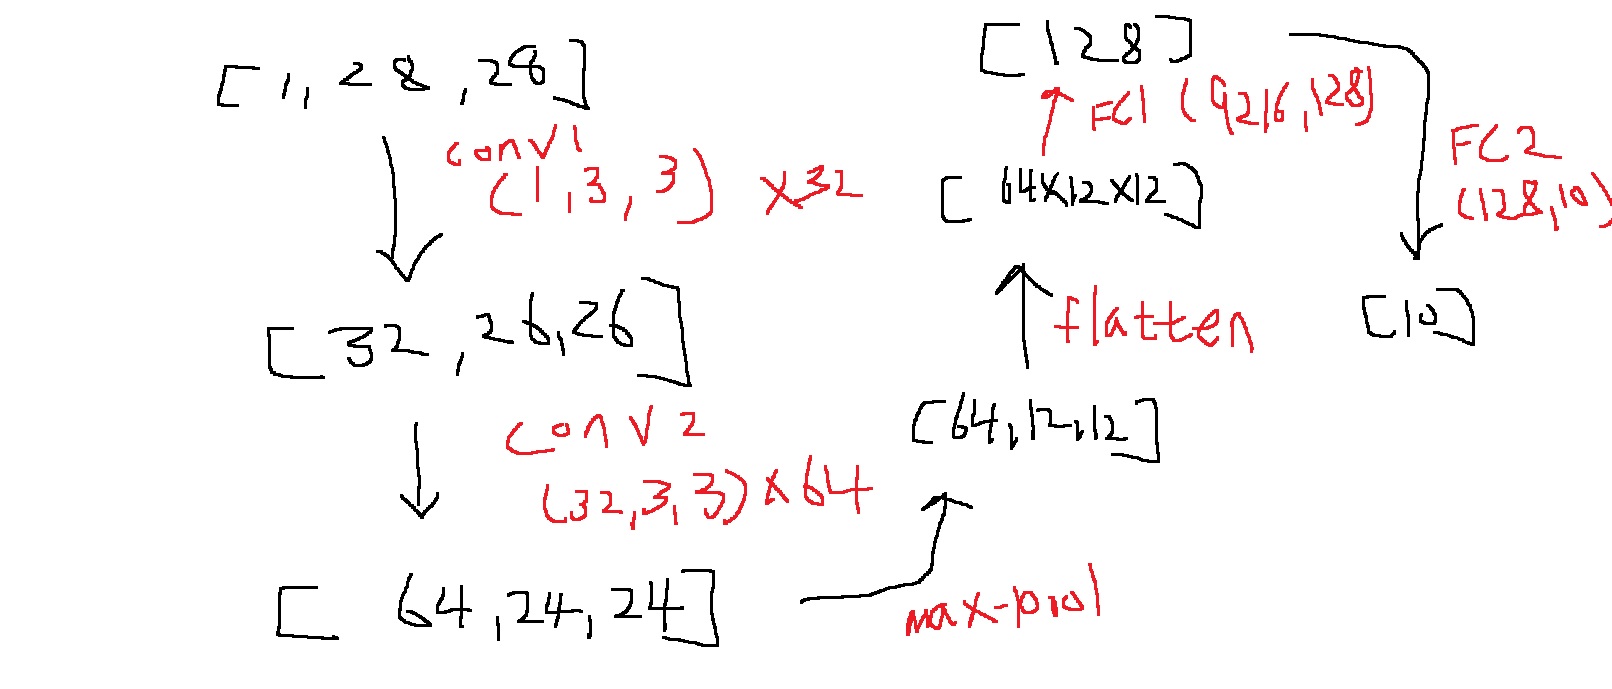 [1, 28, 28]
conv1
(1, 3, 3) ×32
[32, 26, 26]
conv2
(32, 3, 3) ×64
[64, 24, 24]
max-pool
[64, 12, 12]
flatten
[64×12×12]
FC1 (9216, 128)
[128]
FC2
(128, 10)
[10]